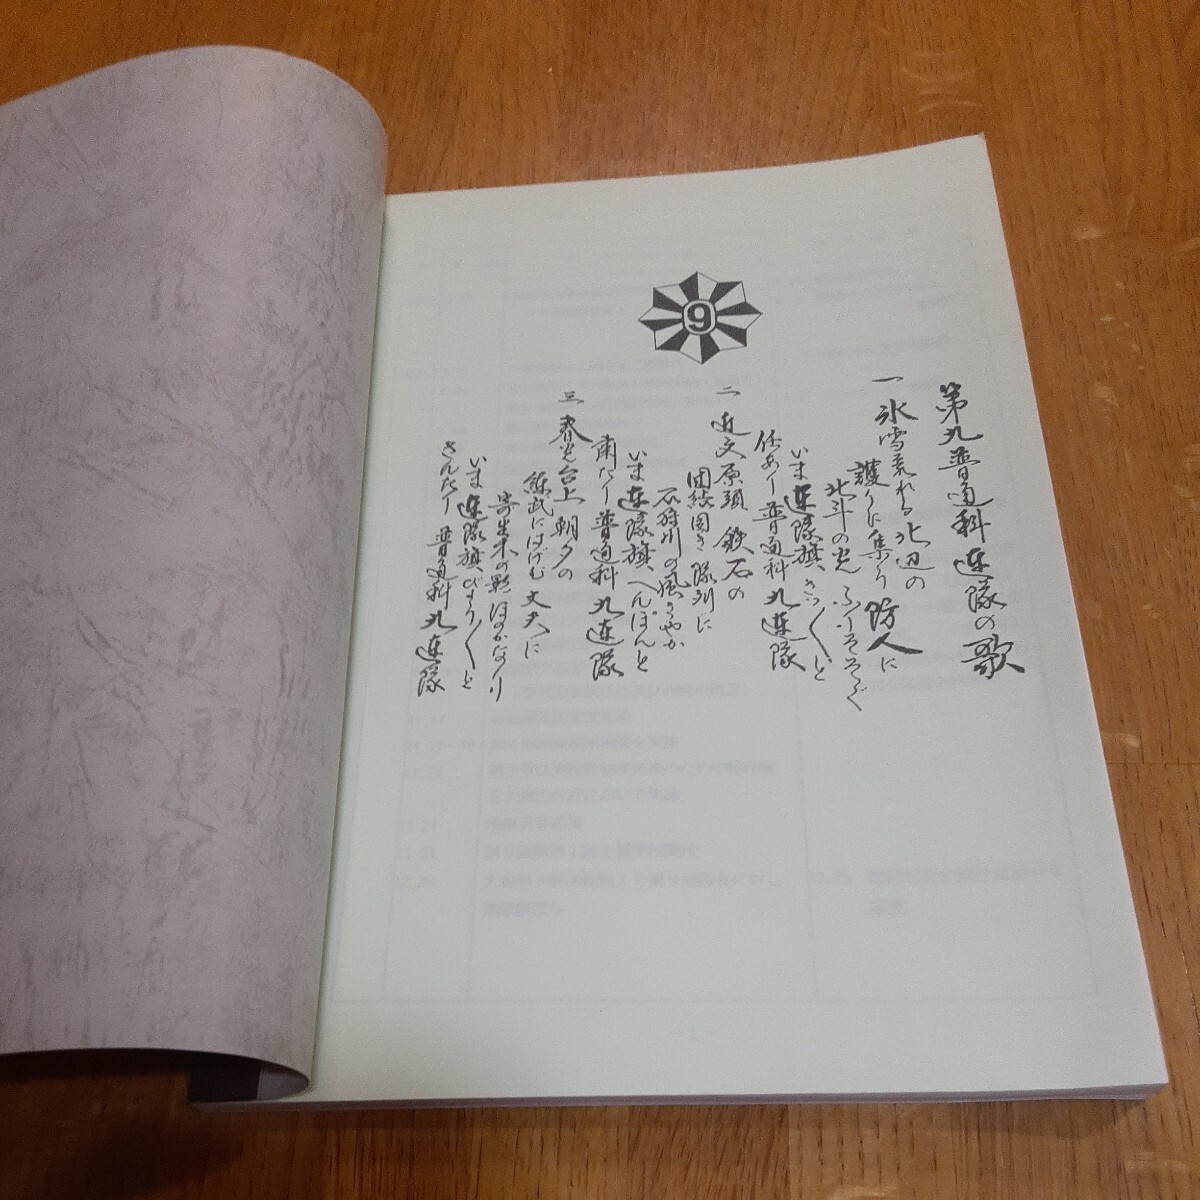 9
第九普通科連隊の歌
一 氷雪荒れる北辺の
護りに集う防人に
北斗の光ふりそそぐ
いま連隊旗さつ〱と
任あり普通科九連隊
二 近文原頭鉄石の
団結固き隊列に
石狩川の風さやか
いま連隊旗へんぽんと
粛たり普通科九連隊
三 春光台上朝夕の
練武にはげむ丈夫に
寄生木の影ほのかなり
いま連隊旗びより〱と
さんたり普通科九連隊